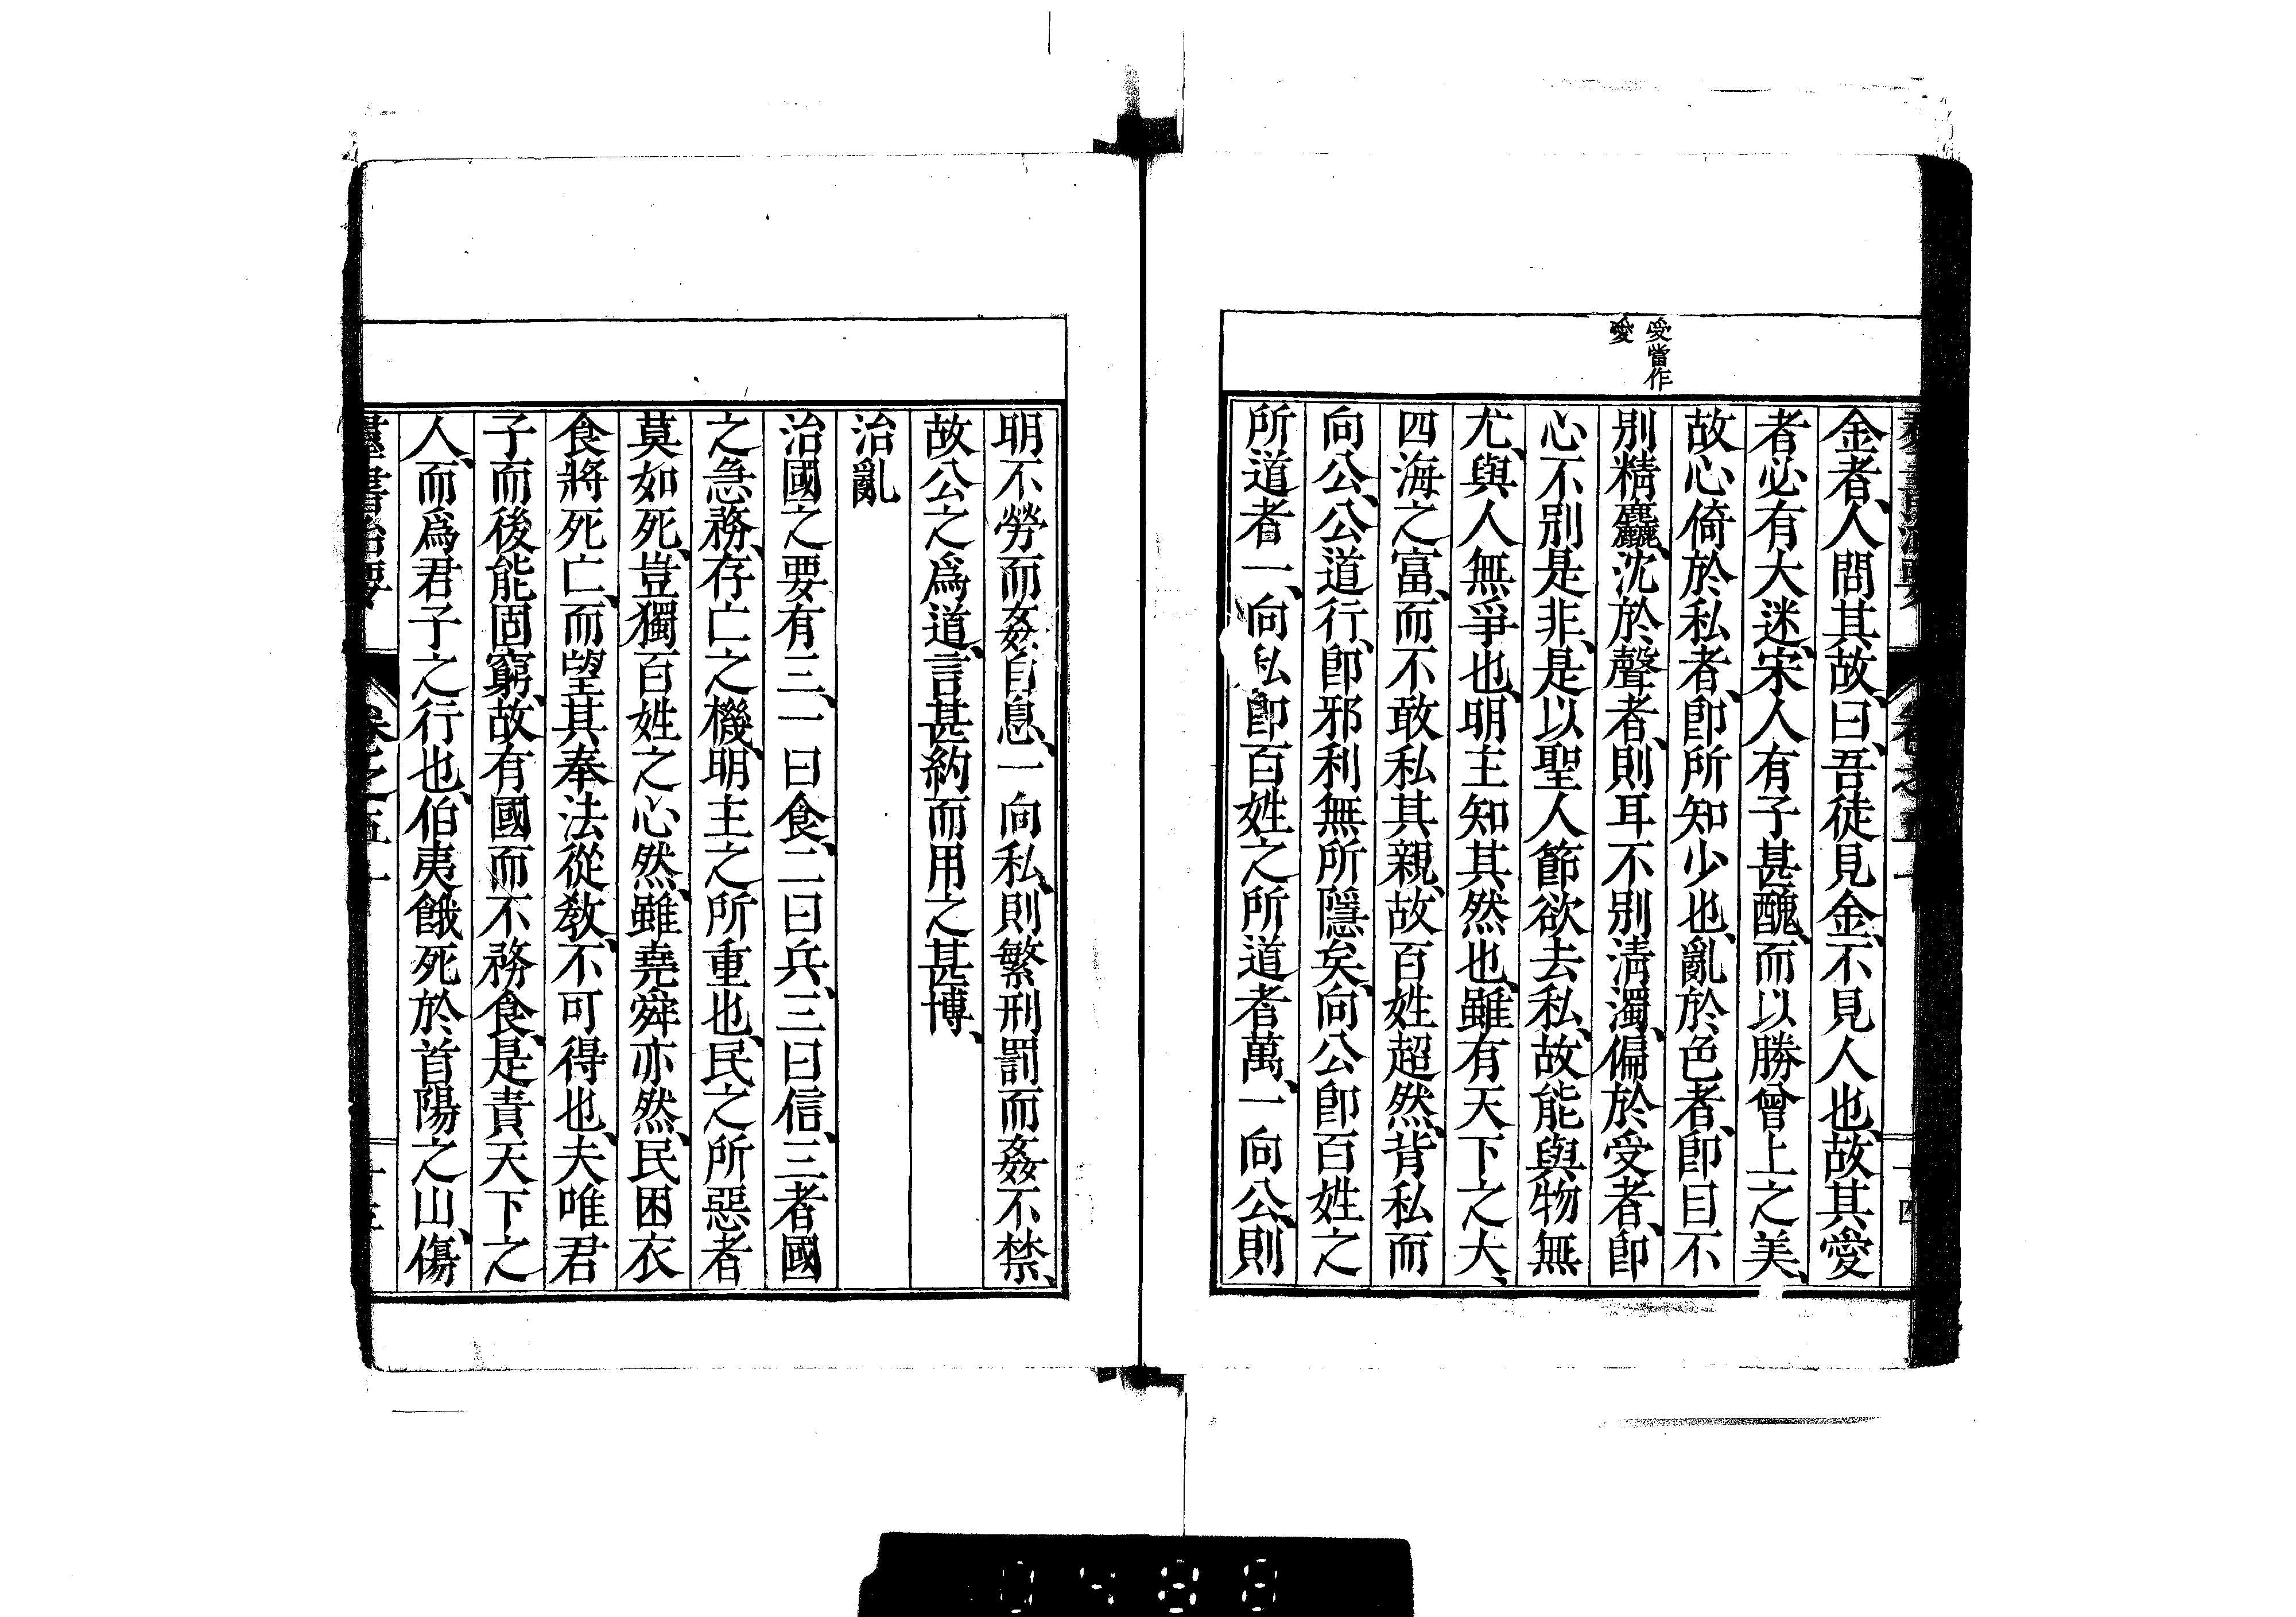 群書治要 卷之五十 十四
受當作
愛
金者、人問其故、曰、吾徒見金、不見人也、故其愛
者必有大迷、宋人有子甚醜、而以勝曾上之美、
故心倚於私者、即所知少也、亂於色者、即目不
別精麤、沈於聲者、則耳不別清濁、偏於受者、即
心不別是非、是以聖人節欲去私、故能與物無
尤、與人無爭也、明主知其然也、雖有天下之大、
四海之富、而不敢私其親、故百姓超然、背私而
向公、公道行、即邪利無所隱矣、向公即百姓之
所道者一、向私即百姓之所道者萬、一向公、則
明不勞而姦自息、一向私、則繁刑罰而姦不禁、
故公之爲道、言甚約而用之甚博、
治亂
治國之要有三、一曰食、二曰兵、三曰信、三者國
之急務、存亡之機、明主之所重也、民之所惡者
莫如死、豈獨百姓之心然、雖堯舜亦然、民困衣
食將死亡、而望其奉法從教、不可得也、夫唯君
子而後能固窮、故有國而不務食、是責天下之
人、而爲君子之行也、伯夷餓死於首陽之山、傷
群書治要 卷之五十 十五